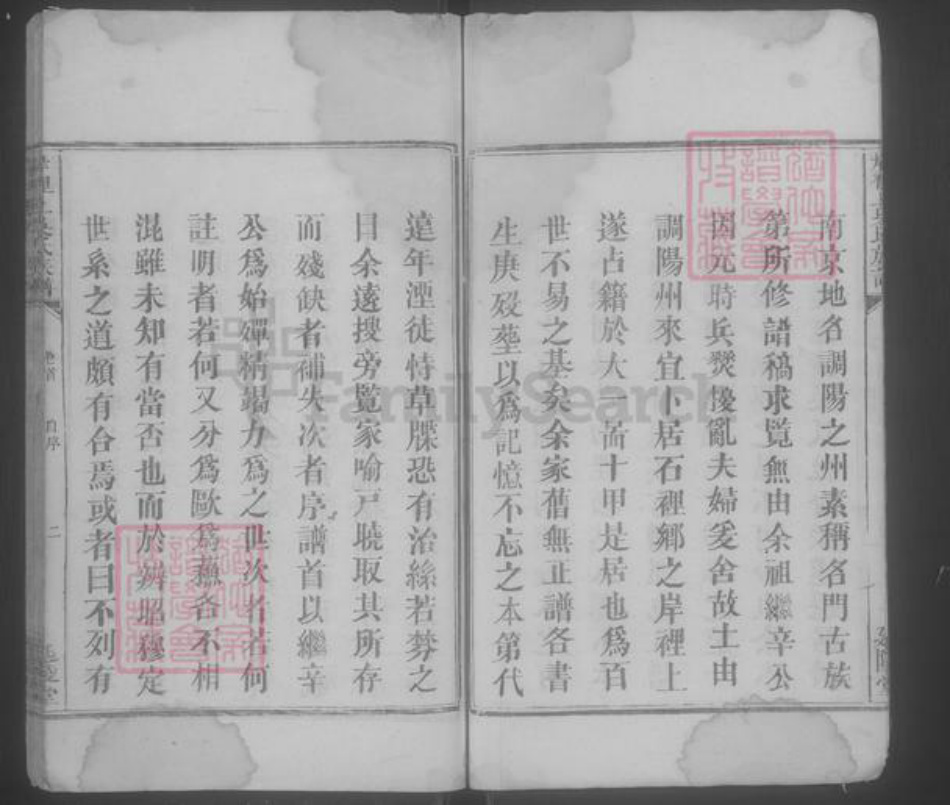 南京地名調陽之州素稱名門古族
第所修譜稿求覧無由余祖繼辛公
因元時兵燹擾亂夫婦爰舍故土由
調陽州來宜卜居石裡鄉之岸裡上
遂占籍於大一啚十甲是居也爲百
世不易之基矣余家舊無正譜各書
生庚歿塟以爲記憶不忘之本第代
遠年湮徒恃草牒恐有治絲若棼之
目余遠搜旁覧家喻戸曉取其所存
而殘缺者補失次者序譜首以繼辛
公爲始殫精竭力爲之世次者若何
註明者若何又分爲歐爲蘇各不相
混雖未知有當否也而於辨昭穆定
世系之道頗有合焉或者曰不列有
卷首
自序
二
FamilySearch